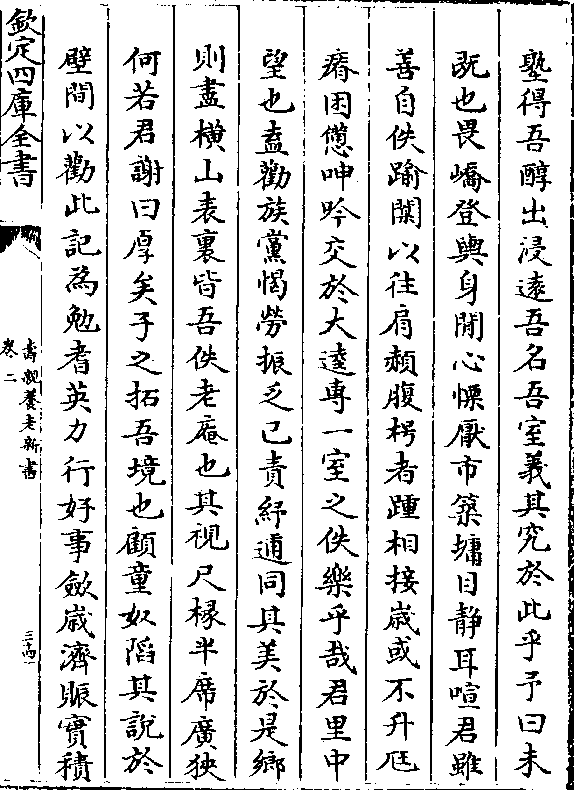 塾得吾醇出浸逺吾名吾室義其究於此乎予曰未
既也畏嶠登輿身閒心慄厭市築墉目静耳喧君雖
善自佚踰關以往肩頳腹枵者踵相接嵗或不升尫
瘠困憊呻吟交於大逵専一室之佚樂乎哉君里中
望也盍勸族黨愒勞振乏已責紓逋同其美於是鄉
則盡横山表裏皆吾佚老庵也其視尺椽半席廣狹
何若君謝曰厚矣子之拓吾境也顧童奴陷其說於
壁間以勸此記為勉耆英力行好事斂嵗濟賑實積
欽定四庫全書
壽親養老新書
卷二